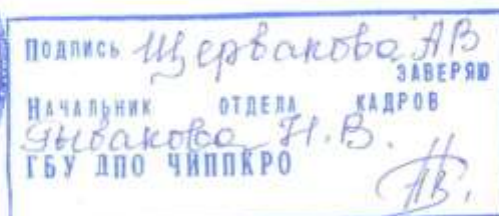 Подпись Щербакова АВ
ЗАВЕРЯЮ
Начальник отдела кадров
Н.В.
ГБУ ДПО ЧИППКРО